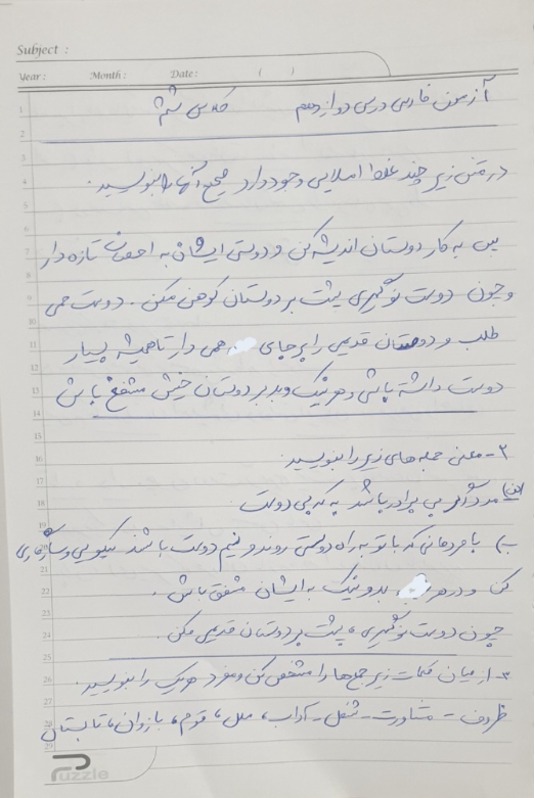 Subject :
Year : Month : Date : ( )
آزمون فارسی درس دوازدهم کلاس ششم
در متن زیر چند غلط املایی وجود دارد صحیح آنها را بنویسید.
پس به کار دوستان اندیشه کن و دوستی ایشان به احسان تازه دار
و چون دوست نو گیری پشت بر دوستان کوهن مکن. دوست همی
طلب و دوستان قدیمی را بر جای همی دار تا همیشه بسیار
دوست داشته باشی و هر نیک و بد بر دوستان خیش مشفغ باش
۲- معنی جمله های زیر را بنویسید.
الف) مرد اگر بی برادر باشد به که بی دوست.
ب) با مردمانی که با تو به راه دوستی روند و نیم دوست باشند نیکویی و سازگاری
کن و در هر بد و نیک به ایشان مشفق باش.
چون دوست نو گیری، پشت بر دوستان قدیمی مکن.
۳- از میان کلمات زیر جمع ها را مشخص کن و مفرد هر یک را بنویسید.
ظروف - مشاورت - شغل - آداب، ملل، قوم، بازوان، تابستان
Puzzle